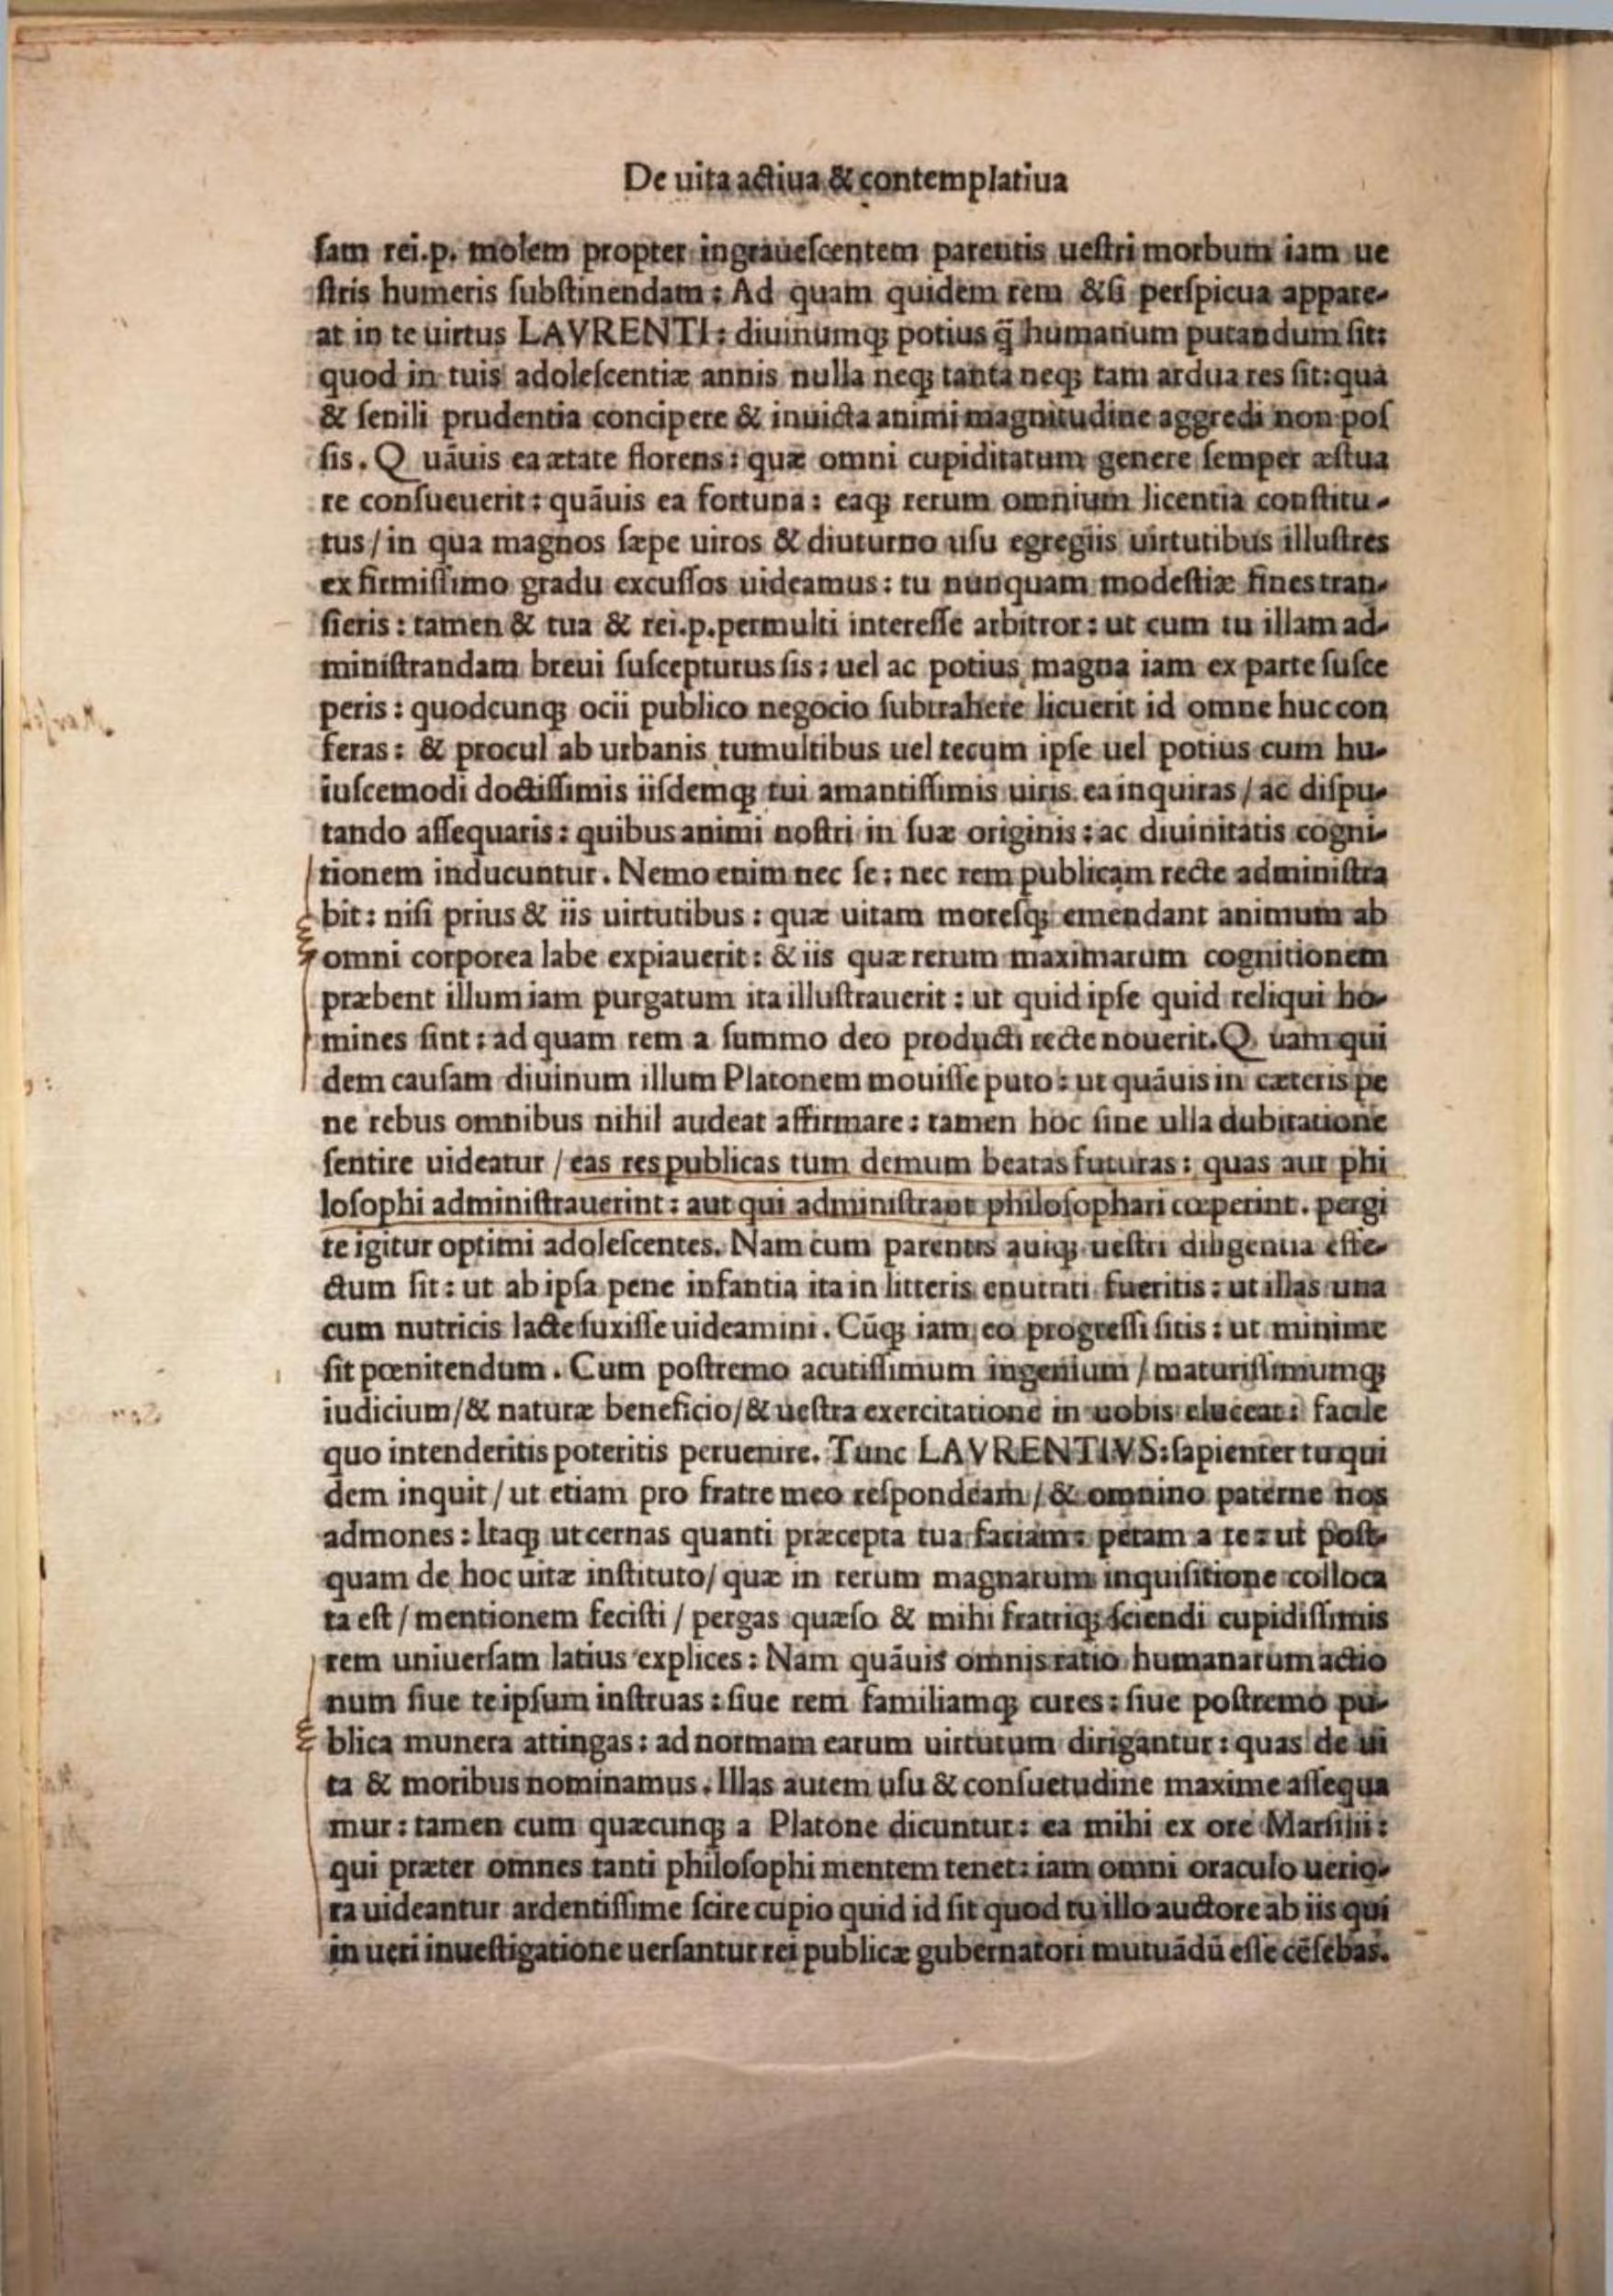 De uita actiua & contemplatiua
ſam rei.p. molem propter ingraueſcentem parentis ueſtri morbum iam ue
ſtris humeris ſubſtinendam : Ad quam quidem rem &ſi perſpicua appare-
at in te uirtus LAVRENTI : diuinumq; potius q̃ humanum putandum ſit:
quod in tuis adoleſcentiæ annis nulla neq; tanta neq; tam ardua res ſit: quā
& ſenili prudentia concipere & inuicta animi magnitudine aggredi non poſ
ſis. Q uāuis ea ætate florens : quæ omni cupiditatum genere ſemper æſtua
re conſueuerit : quāuis ea fortuna : eaq; rerum omnium licentia conſtitu-
tus / in qua magnos ſæpe uiros & diuturno uſu egregiis uirtutibus illuſtres
ex firmiſſimo gradu excuſſos uideamus : tu nunquam modeſtiæ fines tran-
ſieris : tamen & tua & rei.p. permulti intereſſe arbitror : ut cum tu illam ad-
miniſtrandam breui ſuſcepturus ſis : uel ac potius magna iam ex parte ſuſce
peris : quodcunq; ocii publico negocio ſubtrahere licuerit id omne huc con
feras : & procul ab urbanis tumultibus uel tecum ipſe uel potius cum hu-
iuſcemodi doctiſſimis iiſdemq; tui amantiſſimis uiris ea inquiras / ac diſpu-
tando aſſequaris : quibus animi noſtri in ſuæ originis : ac diuinitatis cogni-
tionem inducuntur. Nemo enim nec ſe : nec rem publicam recte adminiſtra
bit : niſi prius & iis uirtutibus : quæ uitam moreſq; emendant animum ab
omni corporea labe expiauerit : & iis quæ rerum maximarum cognitionem
præbent illum iam purgatum ita illuſtrauerit : ut quid ipſe quid reliqui ho-
mines ſint : ad quam rem a ſummo deo producti recte nouerit. Q uam qui
dem cauſam diuinum illum Platonem mouiſſe puto : ut quāuis in cæteris pe
ne rebus omnibus nihil audeat affirmare : tamen hoc ſine ulla dubitatione
ſentire uideatur / eas res publicas tum demum beatas futuras : quas aut phi
loſophi adminiſtrauerint : aut qui adminiſtrant philoſophari cœperint. pergi
te igitur optimi adoleſcentes. Nam cum parentis auiq; ueſtri diligentia effe-
ctum ſit : ut ab ipſa pene infantia ita in litteris enutriti fueritis : ut illas una
cum nutricis lacte ſuxiſſe uideamini. Cūq; iam eo progreſſi ſitis : ut minime
ſit pœnitendum. Cum poſtremo acutiſſimum ingenium / maturiſſimumq;
iudicium / & naturæ beneficio / & ueſtra exercitatione in uobis eluceat : facile
quo intenderitis poteritis peruenire. Tunc LAVRENTIVS : ſapienter tu qui
dem inquit / ut etiam pro fratre meo reſpondeam / & omnino paterne nos
admones : Itaq; ut cernas quanti præcepta tua faciam : petam a te : ut poſt-
quam de hoc uitæ inſtituto / quæ in rerum magnarum inquiſitione colloca
ta eſt / mentionem feciſti / pergas quæſo & mihi fratriq; ſciendi cupidiſſimis
rem uniuerſam latius explices : Nam quāuis omnis ratio humanarum actio
num ſiue te ipſum inſtruas : ſiue rem familiamq; cures : ſiue poſtremo pu-
blica munera attingas : ad normam earum uirtutum dirigantur : quas de ui
ta & moribus nominamus. Illas autem uſu & conſuetudine maxime aſſequa
mur : tamen cum quæcunq; a Platone dicuntur : ea mihi ex ore Marſilii :
qui præter omnes tanti philoſophi mentem tenet : iam omni oraculo uerio-
ra uideantur ardentiſſime ſcire cupio quid id ſit quod tu illo auctore ab iis qui
in ueri inueſtigatione uerſantur rei publicæ gubernatori mutuādū eſſe cēſebas.